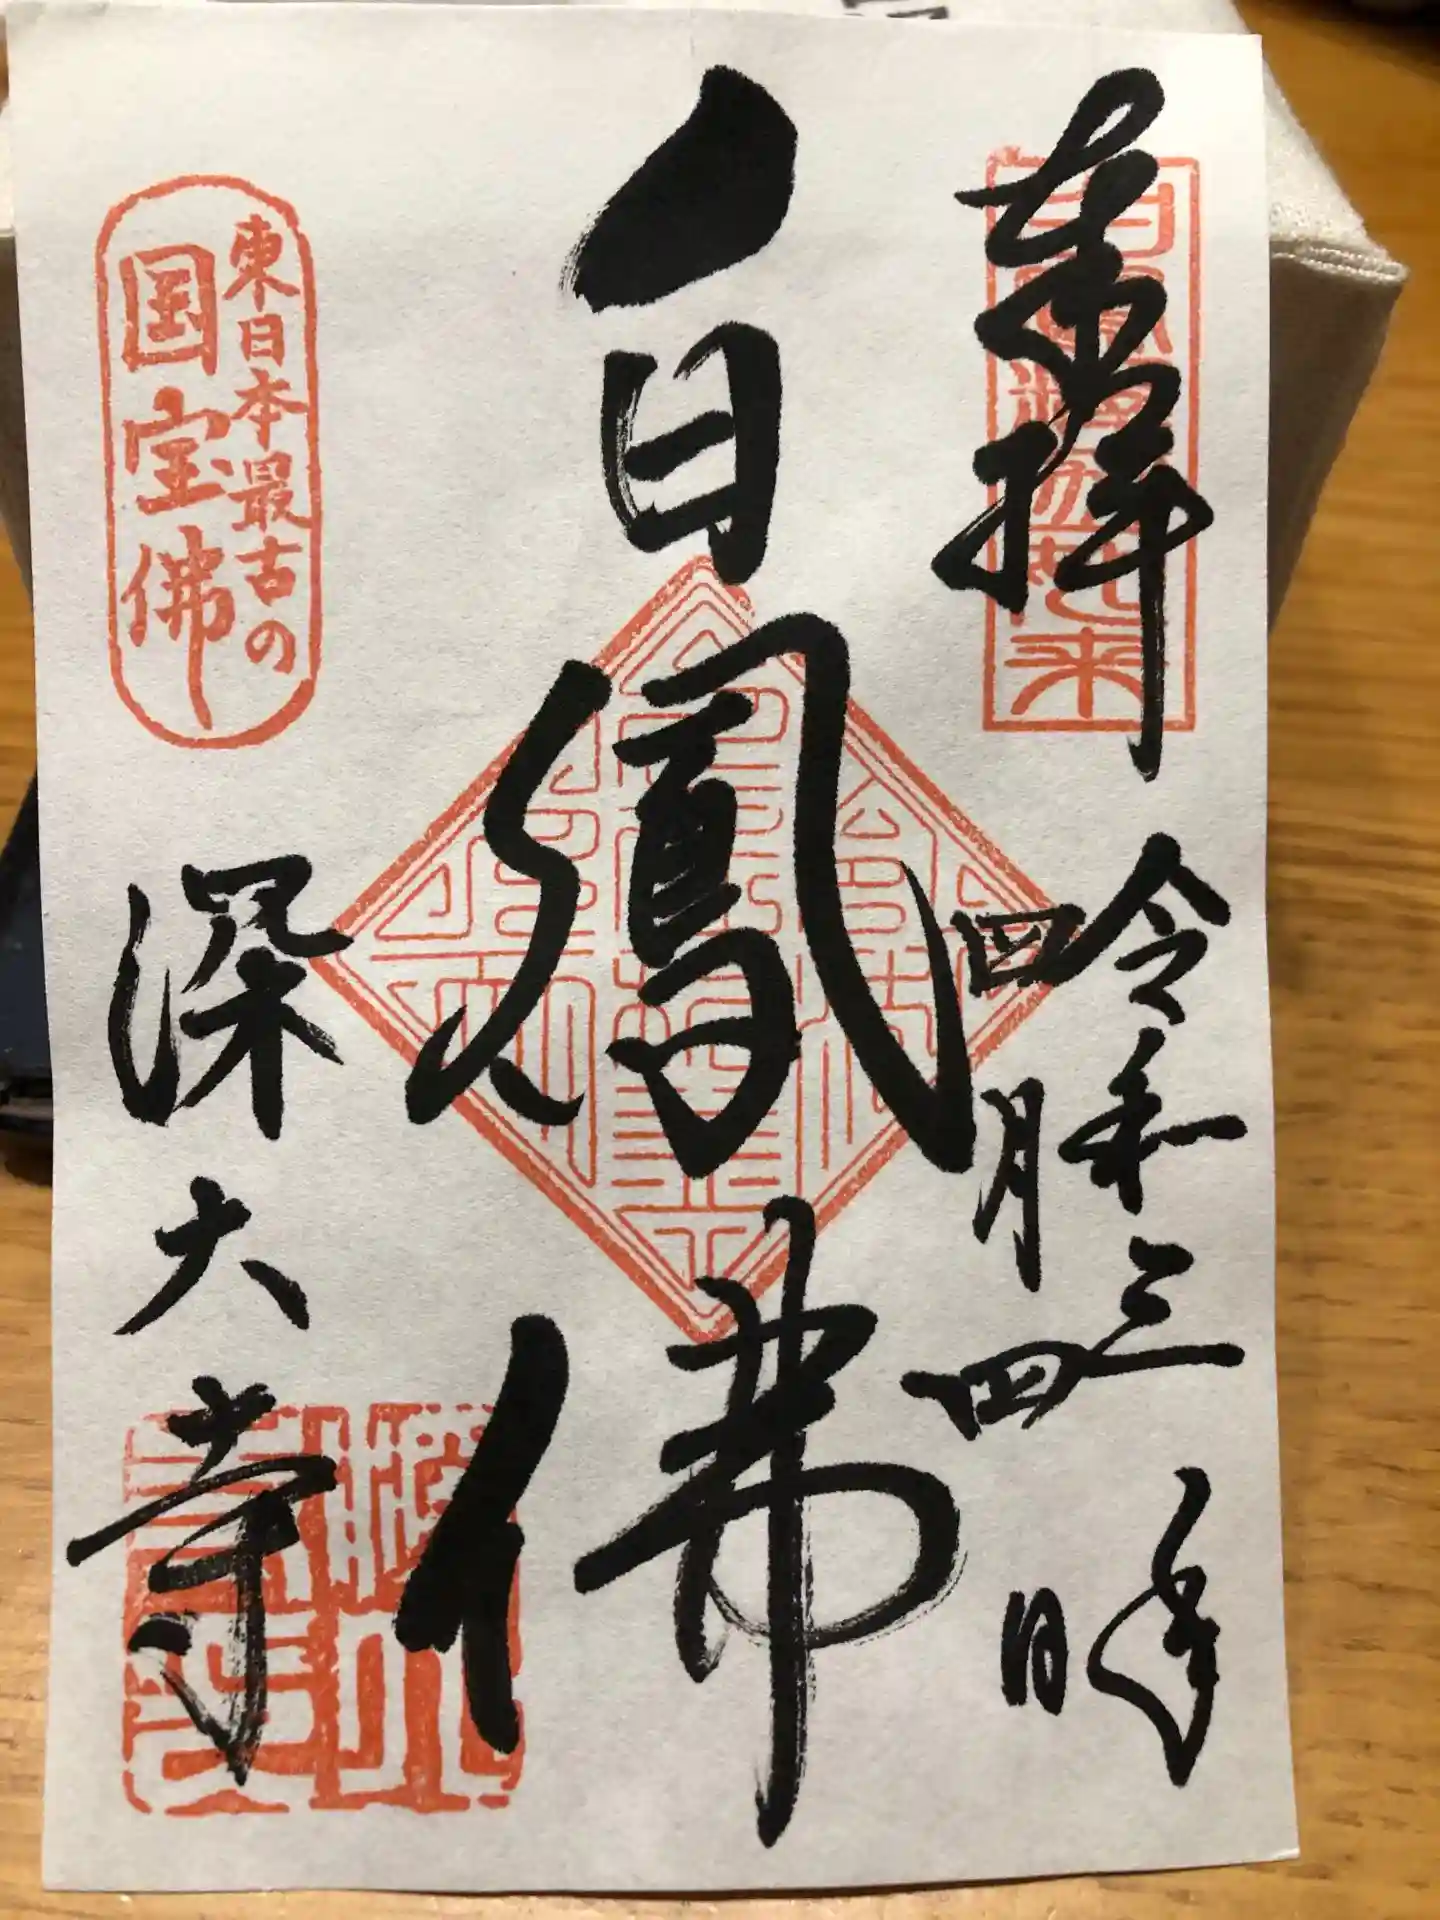 奉拝
令和三年
四月四日
白鳳佛
東日本最古の
国宝佛
深大寺